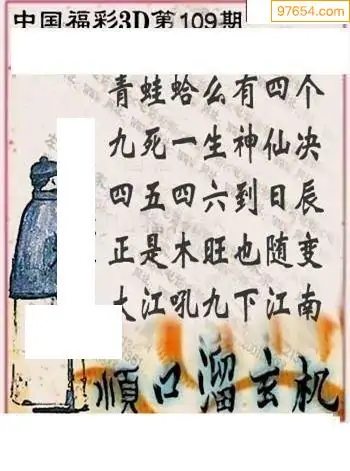 97654.com
中国福彩3D第109期
青蛙蛤么有四个
九死一生神仙决
四五四六到日辰
正是木旺也随变
大江吼九下江南
順口溜玄机